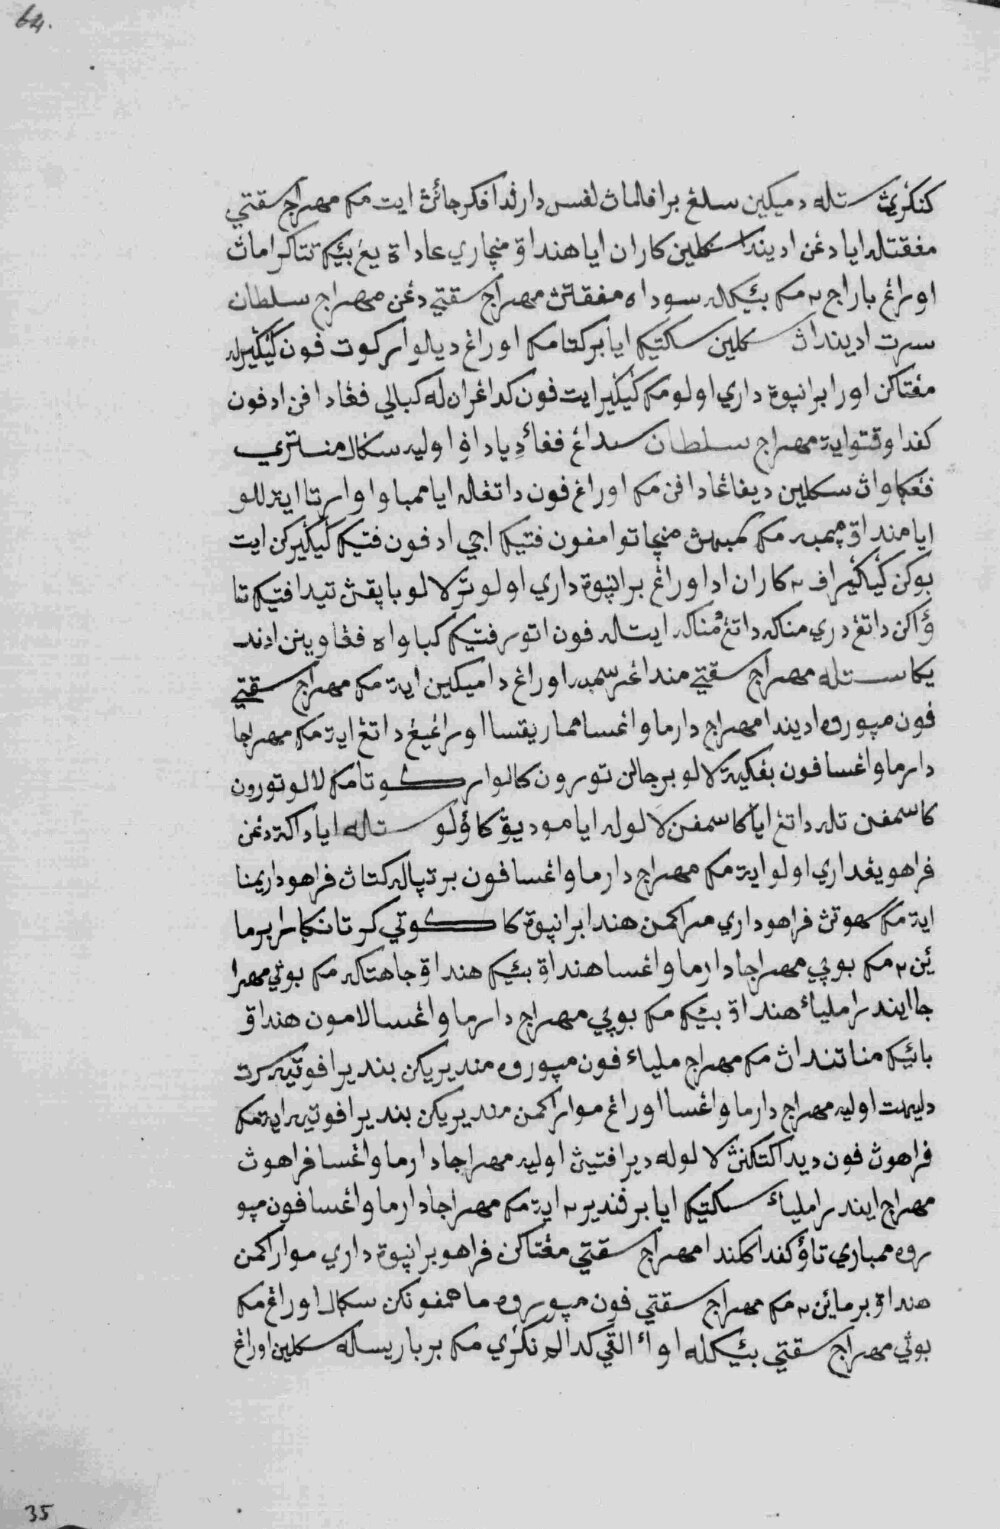 64.
كنكريث ستله دميكين سلڠ برافالماث لفس دارفدا فكرجائنث ايت مك مهراج سقتي
مڠقتله ايا دڠن اديندا سكلين كاران ايا هنداق منچاري عادة يڠ بئيك تتاكراماث
اورڠ باراج٢ مك بئيكله سوداه مڠقتث مهراج سقتي دڠن مهراج سلطان
سرت اديندات سكلين سكتيك ايا بركتا مك اورڠ ديلوار كوت فون كيڠكيرله
مڠتاكن اورا برانپوة داري اولو مك كيڠكيرايت فون كداڠران له كبالي فڠادافن اد فون
كفدا وقتو ايت مهراج سلطان سداڠ فڠاد دياداف اوليه سكال منتري
فڠكاواث سكلين ديفاڠادافن مك اورڠ فون داتڠله ايا ممباوا وارتا ايت لالو
ايا منداق پمبه مك كمبهث منچاتوا مفون فتيك اجي اد فون فتيك كيڠكيركن ايت
بوكن كيڠكير اف٢ كاران اد اورڠ برانپوة داري اولو ترلالو باپقث تيدا فتيك تا
ؤاكن داتڠ دري مناكه داتڠ مناكه ايتاله فون اتور فتيك كباواه فڠاوينن ادند
يكا ستله مهراج سقتي منداڠر سمبه اورڠ داميكين ايت مك مهراج سقتي
فون مپوروه اديندا مهراج دارماواڠسا هماريقسا اورڠيڠ داتڠ ايت مك مهراجا
دارماواڠسا فون بڠكيت لالو برجالن تورون كالوار كوتا مك لالو تورون
كاسمفن تله داتڠ ايا كاسمفن لالوله ايا موديق كاؤلو ستله ايا دكت دڠن
فراهو يڠداري اولو ايت مك مهراج دارماواڠسا فون برتپاله كتاث فراهو داريمنا
ايت مك سهوتث فراهو داري مراكمن هندا برانپوة كا كوتي كرتا نكارا برما
ئين٢ مك بوپي مهراجا دارماواڠسا هنداق بئيك هنداق جاهتكه مك بوپي مهرا
جا ايندرا ملياء هنداق بئيك مك بوپي مهراج دارماواڠسا لامون هنداق
بائيك مناتنداث مك مهراج ملياء فون مپوروه منديريكن بنديرا فوتيه سرت
دليهت اوليه مهراج دارماواڠسا اورڠ مواراكمن منديريكن بنديرا فوتيه ايت مك
فراهوث فون ديداكتكنث لالوله ديرافتيث اوليه مهراجا دارماواڠسا فراهوث
مهراج ايندرا ملياء سكتيك ايا برفندير٢ ايت مك مهراجا دارماواڠسا فون مپو
روه ممباري تاؤ كفدا كلندا مهراج سقتي مڠتاكن فراهو برانپوة داري مواراكمن
هنداق برمائين٢ مك مهراج سقتي فون مپوروه ماهمفونكن سكال اورڠ مك
بوپي مهراج سقتي بئيكله اواء القي كدالم نكري مك برباريساله سكلين اورڠ
35